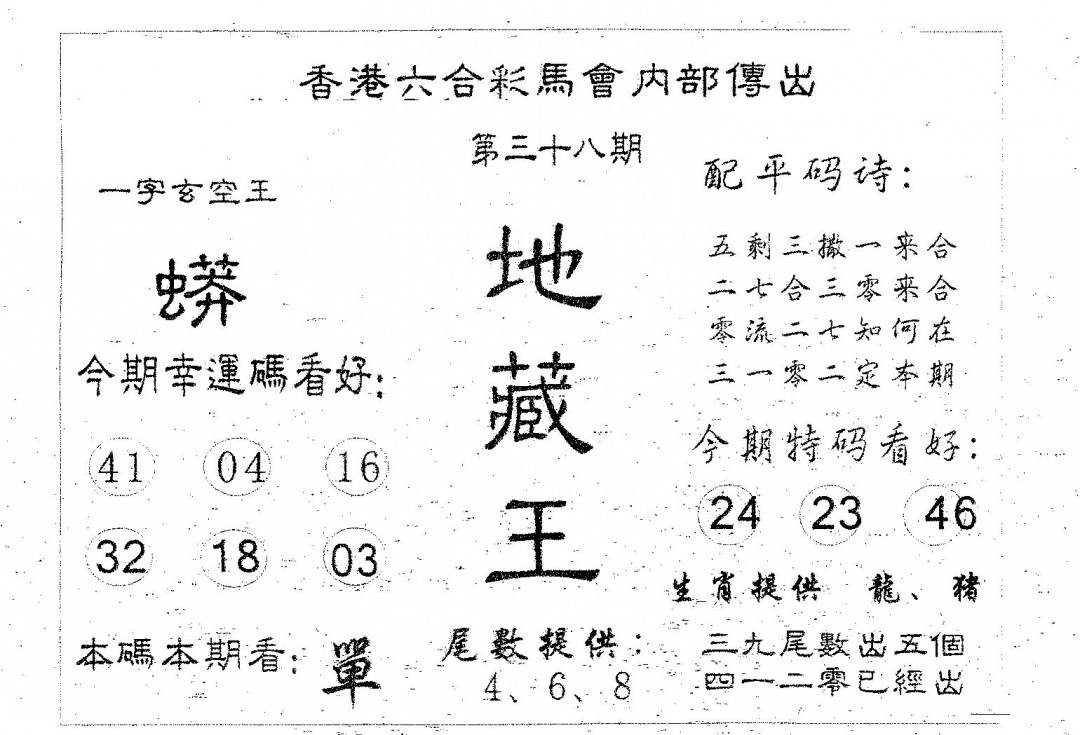 香港六合彩馬會内部傳出
第三十八期
一字玄空王
蟒
今期幸運碼看好：
41 04 16
32 18 03
本碼本期看：單
地
藏
王
尾數提供：
4、6、8
配平码诗：
五剩三撒一来合
二七合三零来合
零流二七知何在
三一零二定本期
今期特码看好：
24 23 46
生肖提供 龍、猪
三九尾數出五個
四一二零已經出